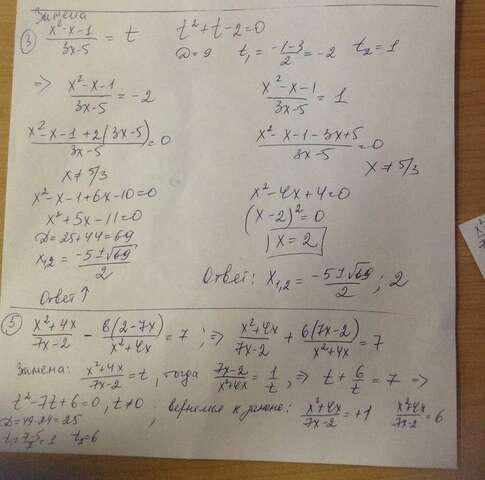 Замена
③ (x²-x-1)/(3x-5) = t   t²+t-2=0
D=9   t₁ = (-1-3)/2 = -2   t₂=1
=> (x²-x-1)/(3x-5) = -2   (x²-x-1)/(3x-5) = 1
(x²-x-1+2(3x-5))/(3x-5) = 0   (x²-x-1-3x+5)/(3x-5) = 0
x ≠ 5/3   x ≠ 5/3
x²-x-1+6x-10=0   x²-4x+4=0
x²+5x-11=0   (x-2)²=0
D=25+44=69   x=2
x₁,₂ = (-5±√69)/2
Ответ: x₁,₂ = (-5±√69)/2 ; 2
Ответ ↑
⑤ (x²+4x)/(7x-2) - 6(2-7x)/(x²+4x) = 7 ; => (x²+4x)/(7x-2) + 6(7x-2)/(x²+4x) = 7
Замена: (x²+4x)/(7x-2) = t, тогда (7x-2)/(x²+4x) = 1/t, => t + 6/t = 7 =>
t²-7t+6=0, t≠0 ; вернемся к замене: (x²+4x)/(7x-2) = +1   (x²+4x)/(7x-2) = 6
D=49-24=25
t₁ = (7-5)/2 = 1   t₂=6